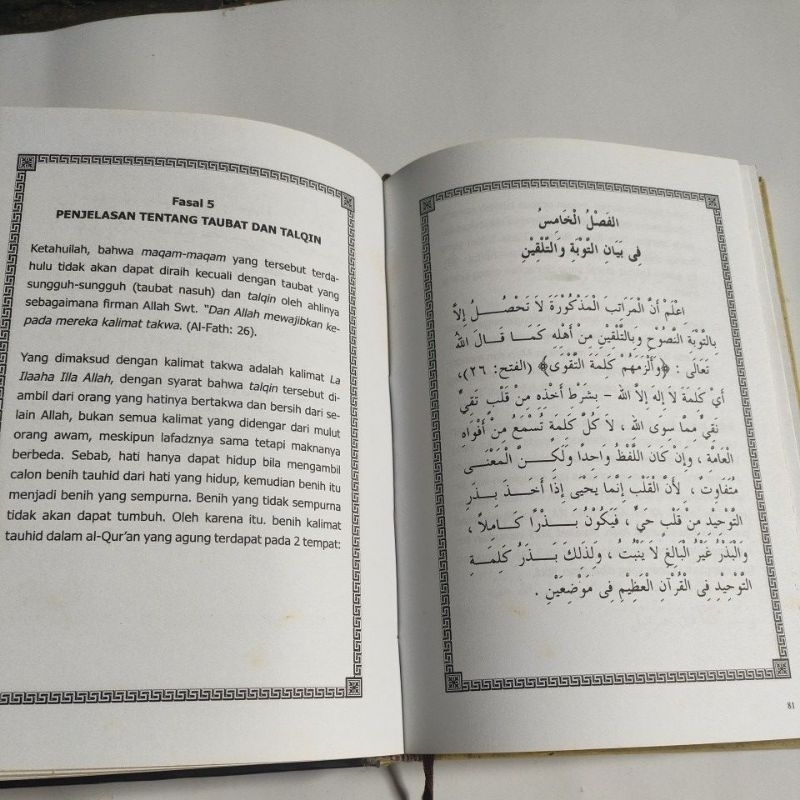 Fasal 5
PENJELASAN TENTANG TAUBAT DAN TALQIN
Ketahuilah, bahwa maqam-maqam yang tersebut terda-
hulu tidak akan dapat diraih kecuali dengan taubat yang
sungguh-sungguh (taubat nasuh) dan talqin oleh ahlinya
sebagaimana firman Allah Swt. "Dan Allah mewajibkan ke-
pada mereka kalimat takwa. (Al-Fath: 26).
Yang dimaksud dengan kalimat takwa adalah kalimat La
Ilaaha Illa Allah, dengan syarat bahwa talqin tersebut di-
ambil dari orang yang hatinya bertakwa dan bersih dari se-
lain Allah, bukan semua kalimat yang didengar dari mulut
orang awam, meskipun lafadznya sama tetapi maknanya
berbeda. Sebab, hati hanya dapat hidup bila mengambil
calon benih tauhid dari hati yang hidup, kemudian benih itu
menjadi benih yang sempurna. Benih yang tidak sempurna
tidak akan dapat tumbuh. Oleh karena itu. benih kalimat
tauhid dalam al-Qur'an yang agung terdapat pada 2 tempat:
الفَصْلُ الْخَامِسُ
فِي بَيَانِ التَّوْبَةِ وَالتَّلْقِيْنِ
اعْلَمْ أَنَّ الْمَرَاتِبَ الْمَذْكُورَةَ لاَ تَحْصُـلُ إِلاَّ
بِالتَّوْبَةِ النَّصُوْحِ وَبِالتَّلْقِيْنِ مِنْ أَهْلِهِ كَمَـا قَـالَ اللهُ
تَعَالَى : ﴿وَأَلْزَمَهُمْ كَلِمَةَ التَّقْوَى﴾ (الفتح: ٢٦)،
أَيْ كَلِمَةَ لاَ إِلهَ إِلاَّ الله – بِشَرْطِ أَخْذِهِ مِنْ قَلْبٍ تَقِيٍّ
نَقِيٍّ مِمَّا سِوَى الله ، لاَ كُلُّ كَلِمَةٍ تُسْمَعُ مِنْ أَفْوَاهِ
الْعَامَّةِ ، وَإِنْ كَانَ اللَّفْظُ وَاحِدًا وَلَكِـنَّ الْمَعْنَـى
مُتَفَاوِتٌ ، لأَنَّ الْقَلْبَ إِنَّمَا يَحْيَى إِذَا أَخَـذَ بِـذْرَ
التَّوْحِيْدِ مِنْ قَلْبٍ حَيٍّ ، فَيَكُوْنُ بَـذْرًا كَـامِـلاً ،
وَالْبَذْرُ غَيْرُ الْبَالِغِ لاَ يَنْبُتُ ، وَلِذَلِكَ بَـذْرُ كَلِمَـةِ
التَّوْحِيْدِ فِى الْقُرْآنِ الْعَظِيْمِ فِى مَوْضِعَيْنِ .
81